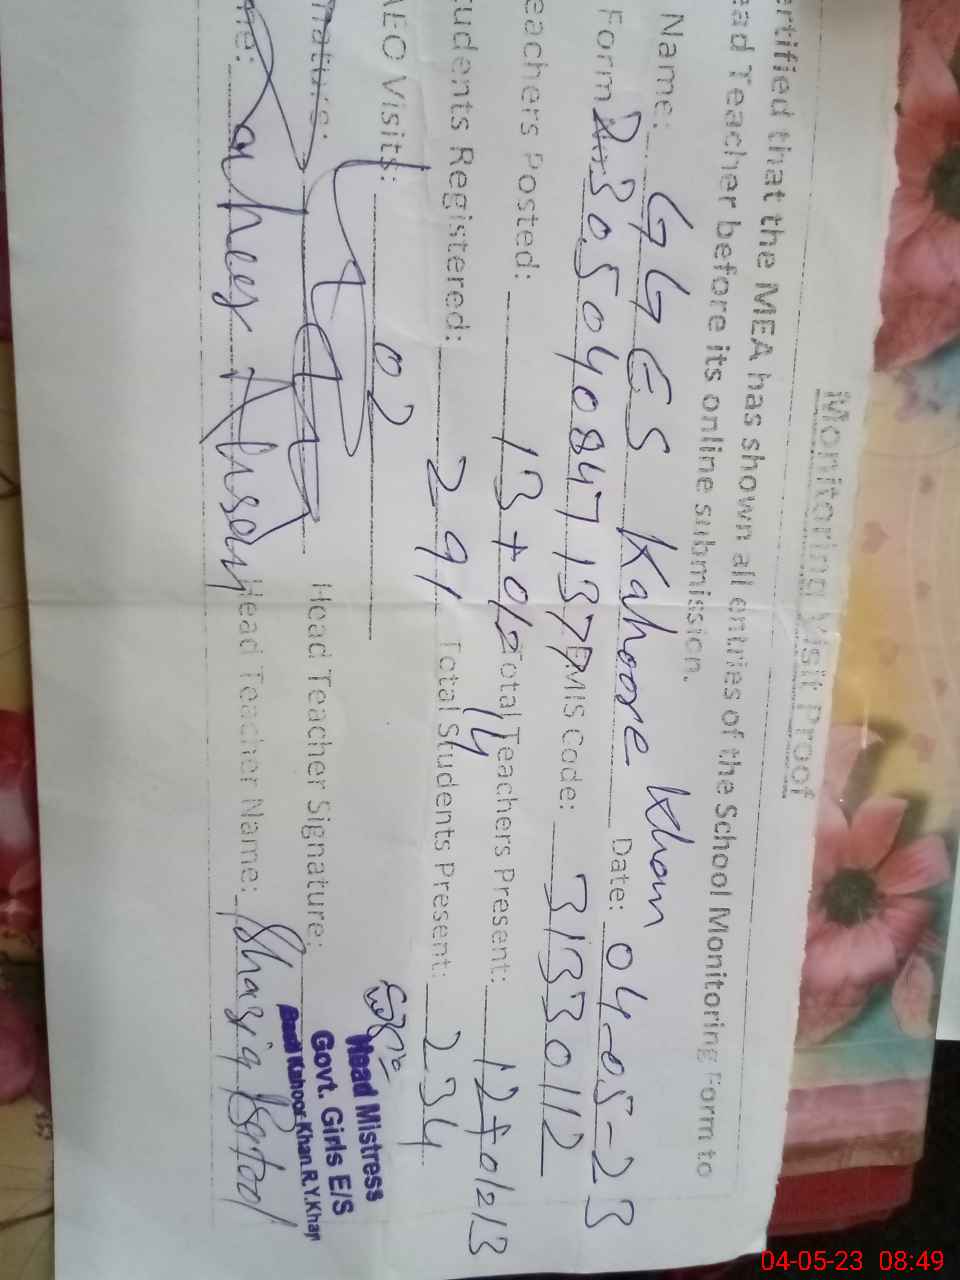 Monitoring Visit Proof
ertified that the MEA has shown all entries of the School Monitoring Form to
ead Teacher before its online submission.
Name: GGES Kahoore Khan Date: 04-05-23
Form EMIS Code: 31330112
eachers Posted: 13+01/2 Total Teachers Present: 12+01213
14
tudents Registered: 291 Total Students Present: 234
AEO Visits: 02
nature: Head Teacher Signature:
Head Mistress
Govt. Girls E/S
Kahoor Khan R.Y.Khan
me: Head Teacher Name:
04-05-23 08:49